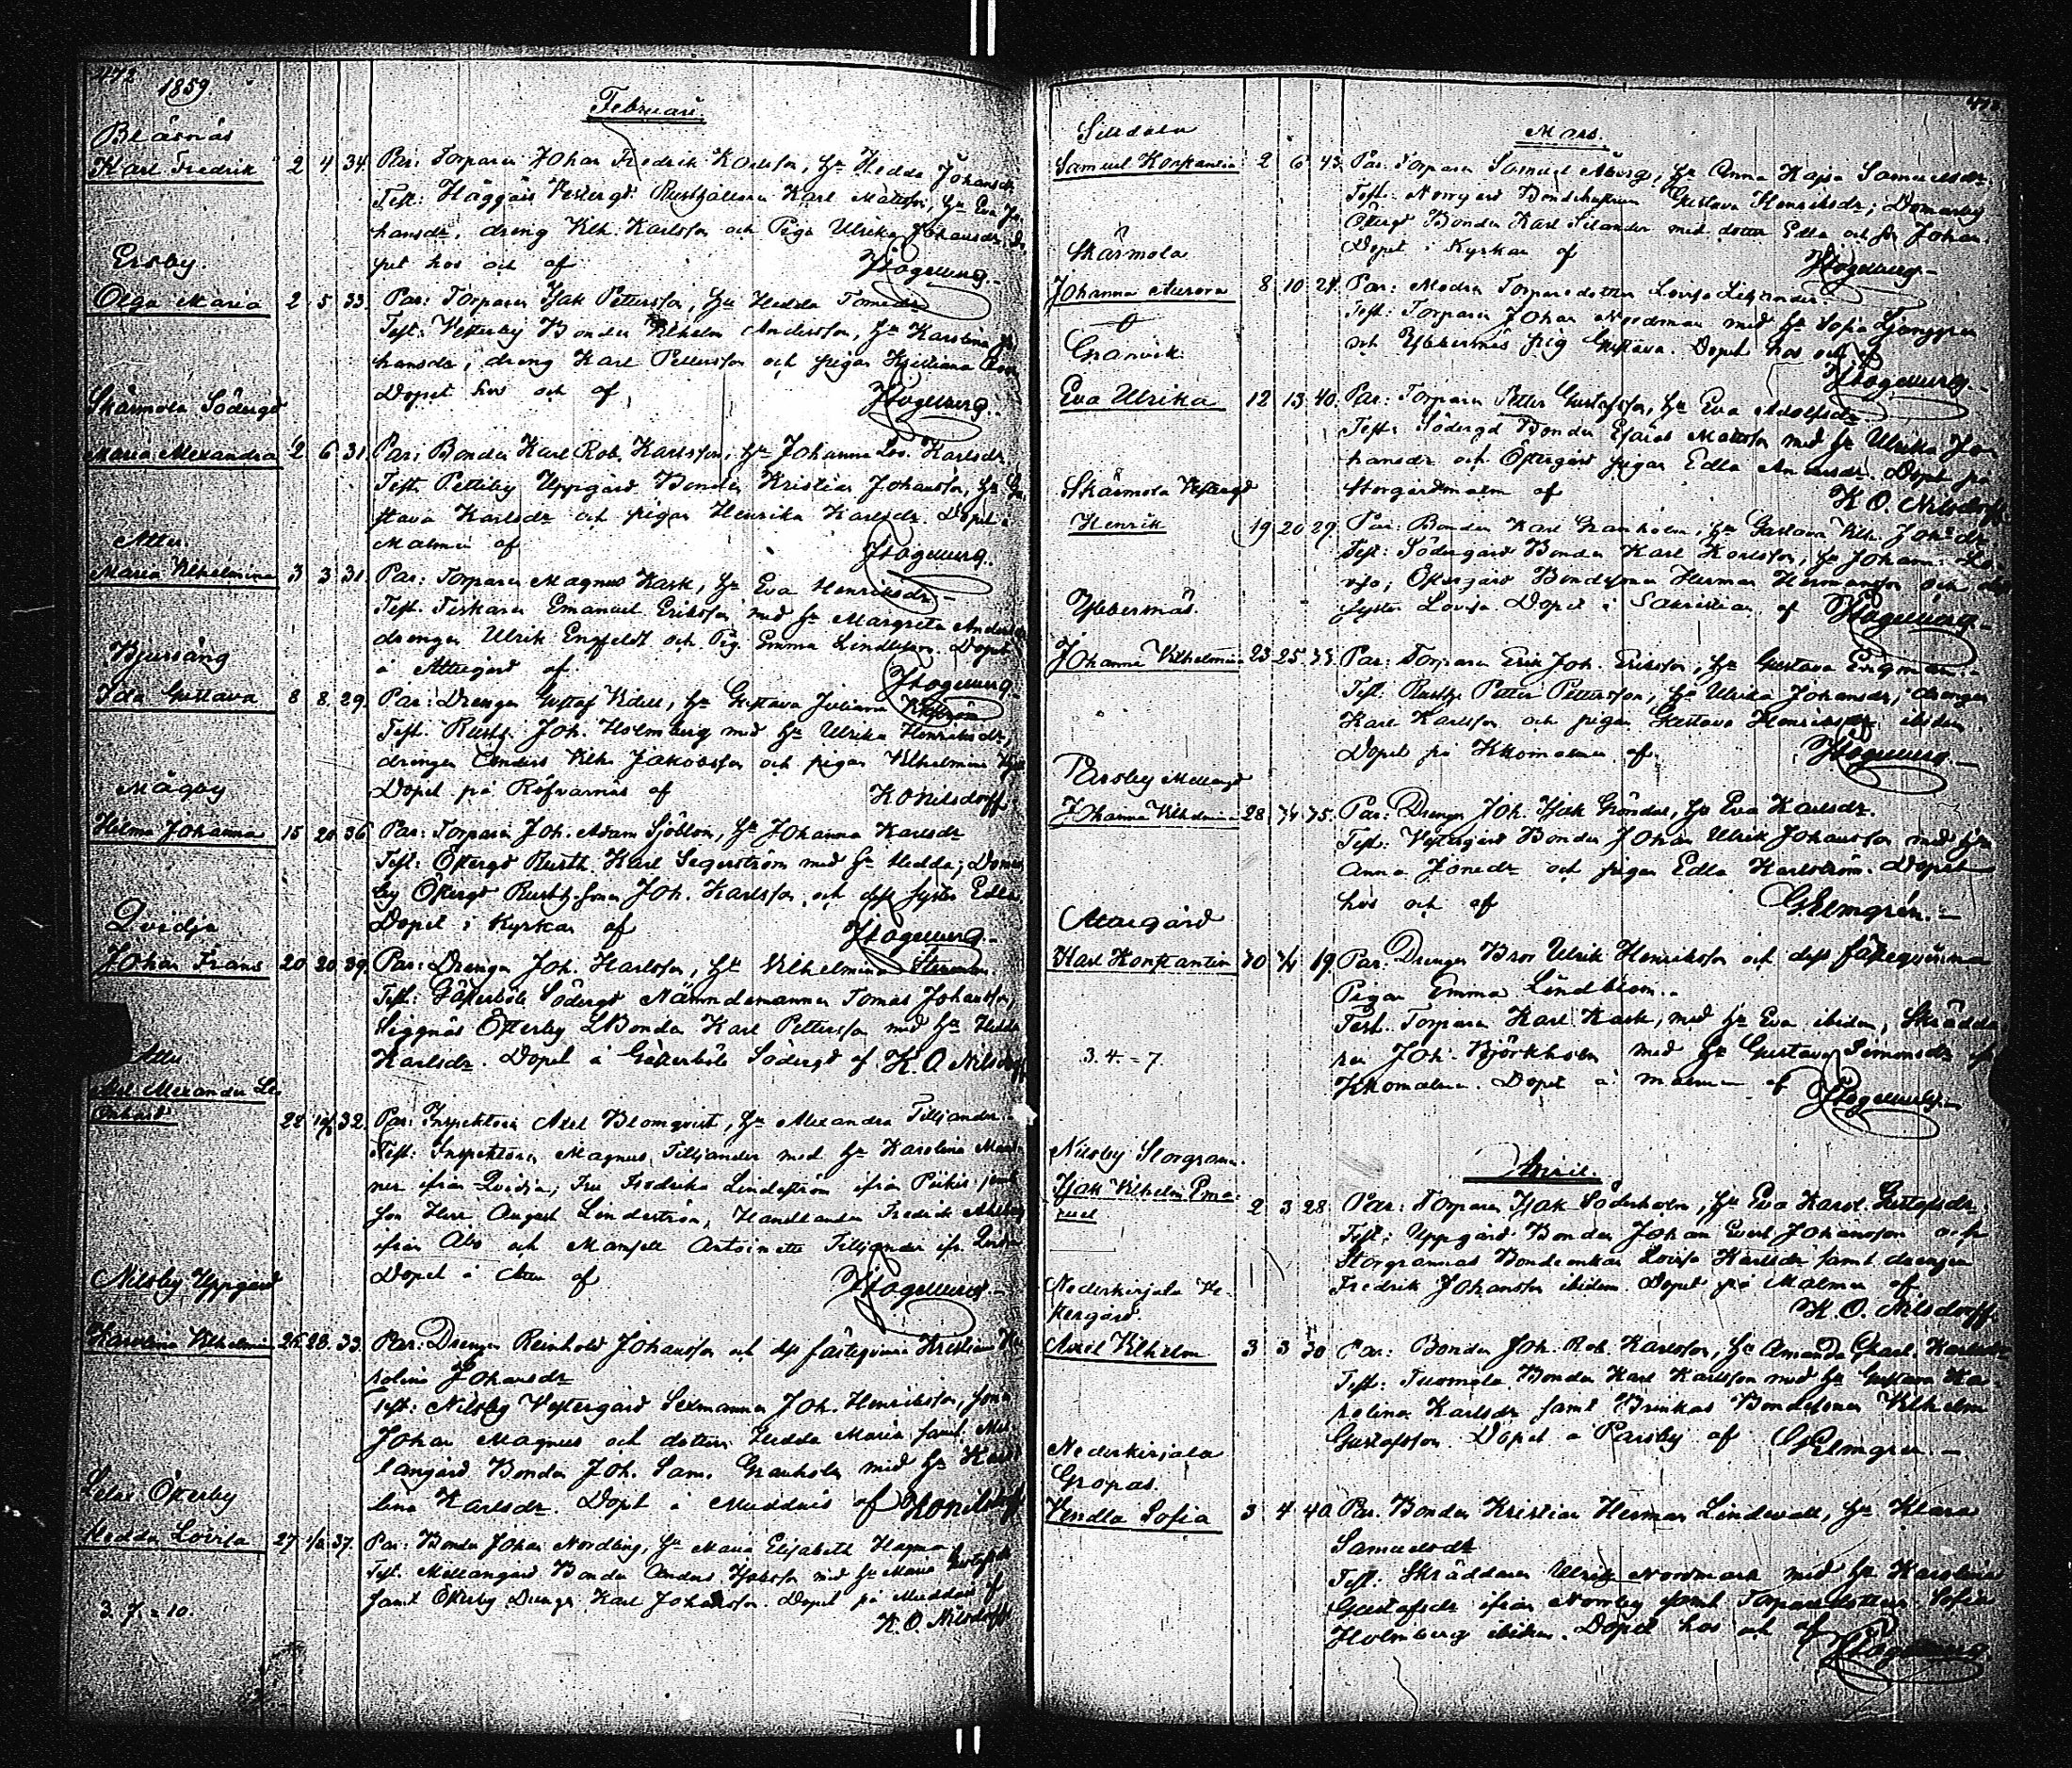 442
1859.
Februari.
Bläsnäs
Karl Fredrik 2 4 34. Par: Torparen Johan Fredrik Karlsson, Hu Hedda Johansdr
Test: Häggäis Vestergd Rusthållaren Karl Mattsson, Hu Eva Jo-
hansdr, dreng Vilh. Karlsson och Piga Ulrika Johansdr. Dö-
pet hos och af Hogelberg.
Ersby.
Olga Maria 2 5 33. Par: Torparen Isak Pettersson, Hu Hedda Tomedr
Test: Vesterby Bonden Vilhelm Andersson, Hu Karolina Jo-
hansdr, dreng Karl Pettersson och pigan
Döpet hos och af Hogelberg.
Skärmola Södergd
Maria Alexandra 2 6 31. Par: Bonden Karl Rob. Karlsson, Hu Johanna Lov. Karlsdr
Test: Petteby Uppgård Bonden Kristian Johansson, Hu Gu-
stava Karlsdr och pigan Henrika Karlsdr. Döpet å
Malmen af Hogelberg.
Attu.
Maria Vilhelmina 3 3 31. Par: Torparen Magnus Kask, Hu Eva Henriksdr
Test: Fiskaren Emanuel Eriksson med Hu Margreta Andersdr
drengen Ulrik Engfeldt och Pig. Emma Lindblom. Döpet
å Attugård af Hogelberg
Bjursäng
Ida Gustava 8 8 29. Par: Drengen Gustaf Videll, Hu Gustava Juliana
Test: Rusth. Joh. Holmberg med Hu Ulrika Henriksdr,
drengen Anders Vilh. Jakobsson och pigan Vilhelmina
Döpet på Röfvarnäs af K O Nilsdorff.
Mågby
Hilma Johanna 15 20 36 Par: Torparen Joh. Adam Sjöblom, Hu Johanna Karlsdr
Test: Östergd Rusth. Karl Segerström med Hu Hedda; Domar-
by Östergd Rusth. sonen Joh. Karlsson och dess syster Edla.
Döpet i Kyrkan af Hogelberg.
Qvidja
Johan Frans 20 20 39. Par: Drengen Joh. Karlsson, Hu Vilhelmina
Test: Gästerböle Södergd Nämndemannen Tomas Johansson,
Siggnäs Österby LBonden Karl Pettersson med Hu Hedda
Karlsdr. Döpet å Gästerböle Södergd af K. O. Nilsdorff
Attu
Axel Alexander Le-
onhard 24 10/3 32. Par: Inspektoren Axel Blomqvist, Hu Alexandra Tilljander.
Test: Inspektoren Magnus Tilljander med Hu Karolina
ner ifrån Qvidja; Fru Fredrika Lindeström ifrån Piikis jemt
son Herr August Lindeström, Handlanden Fredrik
ifrån Åbo och Mamsell Antoinette Tilljander ifr. Qvidja
Döpet å Attu af Hogelberg.
Nilsby Uppgård
Karolina Vilhelmina 26 28 33. Par: Drengen Reinhold Johansson och dess fästeqvinna Kristina Ka-
rolina Johansdr
Test: Nilsby Vestergård Sexmannen Joh. Henriksson, sonen
Johan Magnus och dottern Hedda Maria samt Mel-
langård Bonden Joh. Sam. Granholm med Hu Karo-
lina Karlsdr. Döpt å Muddnäs af K O Nilsdorff.
Lelax Österby
Hedda Lovisa 27 1/3 37. Par: Bonden Johan Nordling, Hu Maria Elisabeth Hagman
Test: Mellangård Bonden Anders Jakobsson med Hu Maria Gustafsdr
samt Österby Drengen Karl Johansson. Döpet på Muddnäs af
K. O. Nilsdorff
3. 7. = 10.
Mars.
Silldala
Samuel Konstantin 2 6 43. Par: Torparen Samuel Åberg, Hu Anna Kajsa Samuelsdr.
Test: Norrgård Bondehustrun Gustava Henriksdr; Domarby
Östergd Bonden Karl Silander med dotter Edla och son Johan.
Döpet i Kyrkan af Hogelberg.
Skärmola
Johanna Aurora 8 10 24. Par: Modren Torparedottren Lovisa
Test: Torparen Johan Nordman med Hu Sofia Ljunggren
och Ybbersnäs pig. Gustava. Döpet hos och af
Hogelberg.
Granvik
Eva Ulrika 12 13 40. Par: Torparen Petter Gustafsson, Hu Eva Adolfsdr
Test: Södergd Bonden Esaias Mattsson med Hu Ulrika Jo-
hansdr och Östergård pigan Edla Andersdr. Döpet på
Storgårdmalm af K. O. Nilsdorff
Skärmola Vestergd
Henrik 19 20 29. Par: Bonden Karl Granholm, Hu Gustava Vilh. Johsdr
Test: Södergård Bonden Karl Karlsson, Hu Johanna Lo-
visa; Östergård Bondesonen Herman Hermansson och dess
syster Lovisa Döpet i Sakristian af Hogelberg.
Ybbersnäs.
Johanna Vilhelmina 23 25 33. Par: Torparen Erik Joh. Eriksson, Hu Gustava Engman.
Test: Rusth. Petter Pettersson, Hu Ulrika Johansdr, drengen
Karl Karlsson och pigan Gustava Henriksdr ibidem
Döpet på Kkomalmen af Hogelberg.
Parsby Mellangd
Johanna Vilhelmina 28 3/4 35. Par: Drengen Joh. Isak Gröndal, Hu Eva Karlsdr.
Test: Vestergård Bonden Johan Ulrik Johansson med Hu
Anna Jonedr och pigan Edla Karlström. Döpet
hos och af G. Elmgrén.
Attugård
Karl Konstantin 30 3/4 19. Par: Drengen Bror Ulrik Henriksson och dess fästeqvinna
Pigan Emma Lindblom.
Test: Torparen Karl Kask, med Hu Eva ibidem, Skrädda-
ren Joh. Björkholm med Hu Gustava Simonsdr
Kkomalmen. Döpet å malmen af Hogelberg.
3. 4. = 7.
April.
Nilsby Storgrann.
Isak Vilhelm Ema-
nuel 2 3 28. Par: Torparen Isak Söderholm, Hu Eva Karol. Gustafsdr.
Test: Uppgård Bonden Johan Evert Johansson och
Storgrannas Bondeenkan Lovisa Karlsdr samt drengen
Fredrik Johansson ibidem. Döpet på Malmen af
K. O. Nilsdorff.
Nederkirjala Ve-
stergård.
Axel Vilhelm 3 3 30 Par: Bonden Joh. Rob. Karlsson, Hu Amanda Charl. Karlsdr
Test: Tuomola Bonden Karl Karlsson med Hu Gustava Ka-
rolina Karlsdr samt Brinkas Bondesonen Vilhelm
Gustafsson. Döpet å Parsby af G. Elmgren.
Nederkirjala
Gropas.
Vendla Sofia 3 4 40. Par: Bonden Kristian Herman Lindevall, Hu Klara
Samuelsdr
Test: Skräddaren Ulrik Nordmark med Hu Karolina
Gustafsdr ifrån Norrby samt Torparedottren Sofia
Holmberg ibidem. Döpet hos och af
Hogelberg